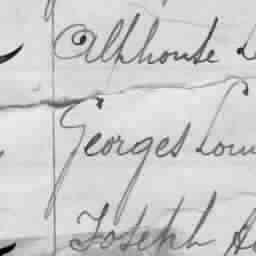 Alphonse
Georges Loui
Joseph